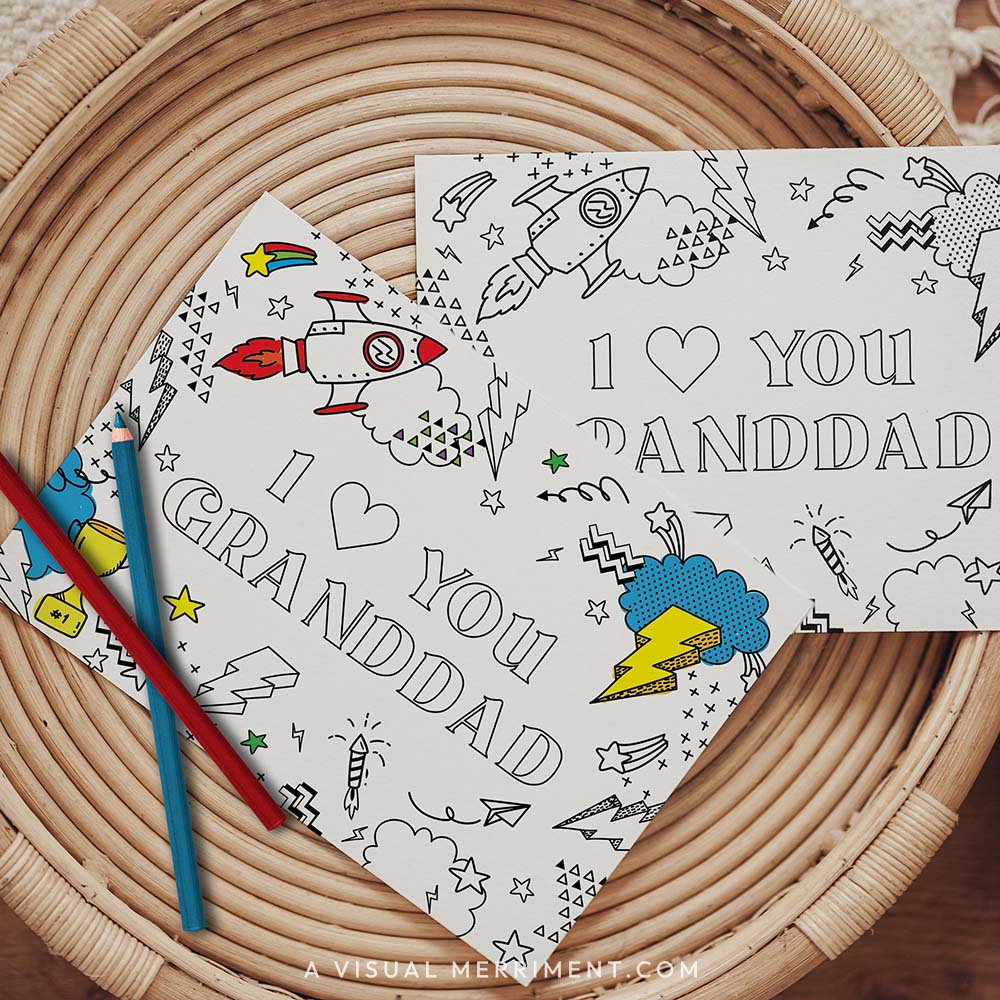 I ♡ YOU
GRANDDAD
#1
I ♡ YOU
RANDDAD
A VISUAL MERRIMENT.COM